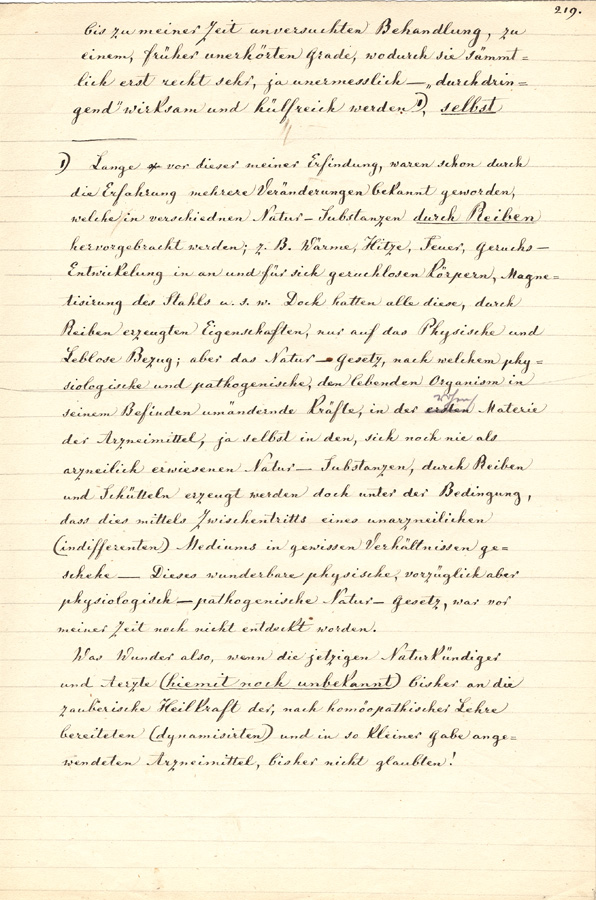 219.
bis zu meiner Zeit unversuchten Behandlung, zu
einem, früher unerhörten Grade, wodurch sie sämmt=
lich erst recht sehr, ja unermesslich — „durchdrin=
gend" wirksam und hülfreich werden 1), selbst
1) Lange vor dieser meiner Erfindung, waren schon durch
die Erfahrung mehrere Veränderungen bekannt geworden,
welche in verschiednen Natur-Substanzen durch Reiben
hervorgebracht werden; z. B. Wärme, Hitze, Feuer, Geruchs-
Entwickelung in an und für sich geruchlosen Körpern, Magne=
tisirung des Stahls u. s. w. Doch hatten alle diese, durch
Reiben erzeugten Eigenschaften, nur auf das Physische und
Leblose Bezug; aber das Natur-Gesetz, nach welchem phy=
siologische und pathogenische, den lebenden Organism in
seinem Befinden umändernde Kräfte, in der rohen
ersten Materie
der Arzneimittel, ja selbst in den, sich noch nie als
arzneilich erwiesenen Natur-Substanzen, durch Reiben
und Schütteln erzeugt werden doch unter der Bedingung,
dass dies mittels Zwischentritts eines unarzneilichen
(indifferenten) Mediums in gewissen Verhältnissen ge=
schehe — Dieses wunderbare physische, vorzüglich aber
physiologisch-pathogenische Natur-Gesetz, war vor
meiner Zeit noch nicht entdeckt worden.
Was Wunder also, wenn die jetzigen Naturkündiger
und Aerzte (hiemit noch unbekannt) bisher an die
zauberische Heilkraft der, nach homöopathischer Lehre
bereiteten (dynamisirten) und in so kleiner Gabe ange=
wendeten Arzneimittel, bisher nicht glaubten!